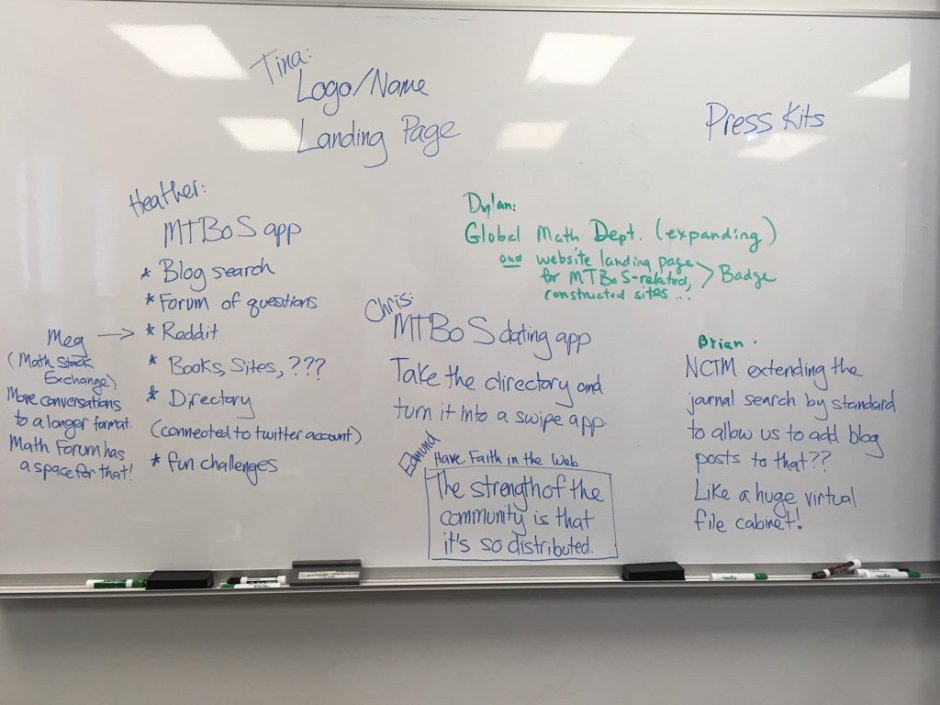 Tina:
Logo/Name
Landing Page
Press Kits
Heather:
MTBoS app
* Blog search
* Forum of questions
* Reddit
* Books, Sites, ???
* Directory
(connected to twitter account)
* fun challenges
Meg →
(Math Stack
Exchange)
More conversations
to a longer format.
Math Forum has
a space for that!
Dylan:
Global Math Dept. (expanding)
and website landing page
for MTBoS-related,
constructed sites ...
> Badge
Chris:
MTBoS dating app
Take the directory and
turn it into a swipe app.
Edmund
Have Faith in the Web
The strength of the
community is that
it's so distributed.
Brian.
NCTM extending the
journal search by standard
to allow us to add blog
posts to that??
Like a huge virtual
file cabinet!